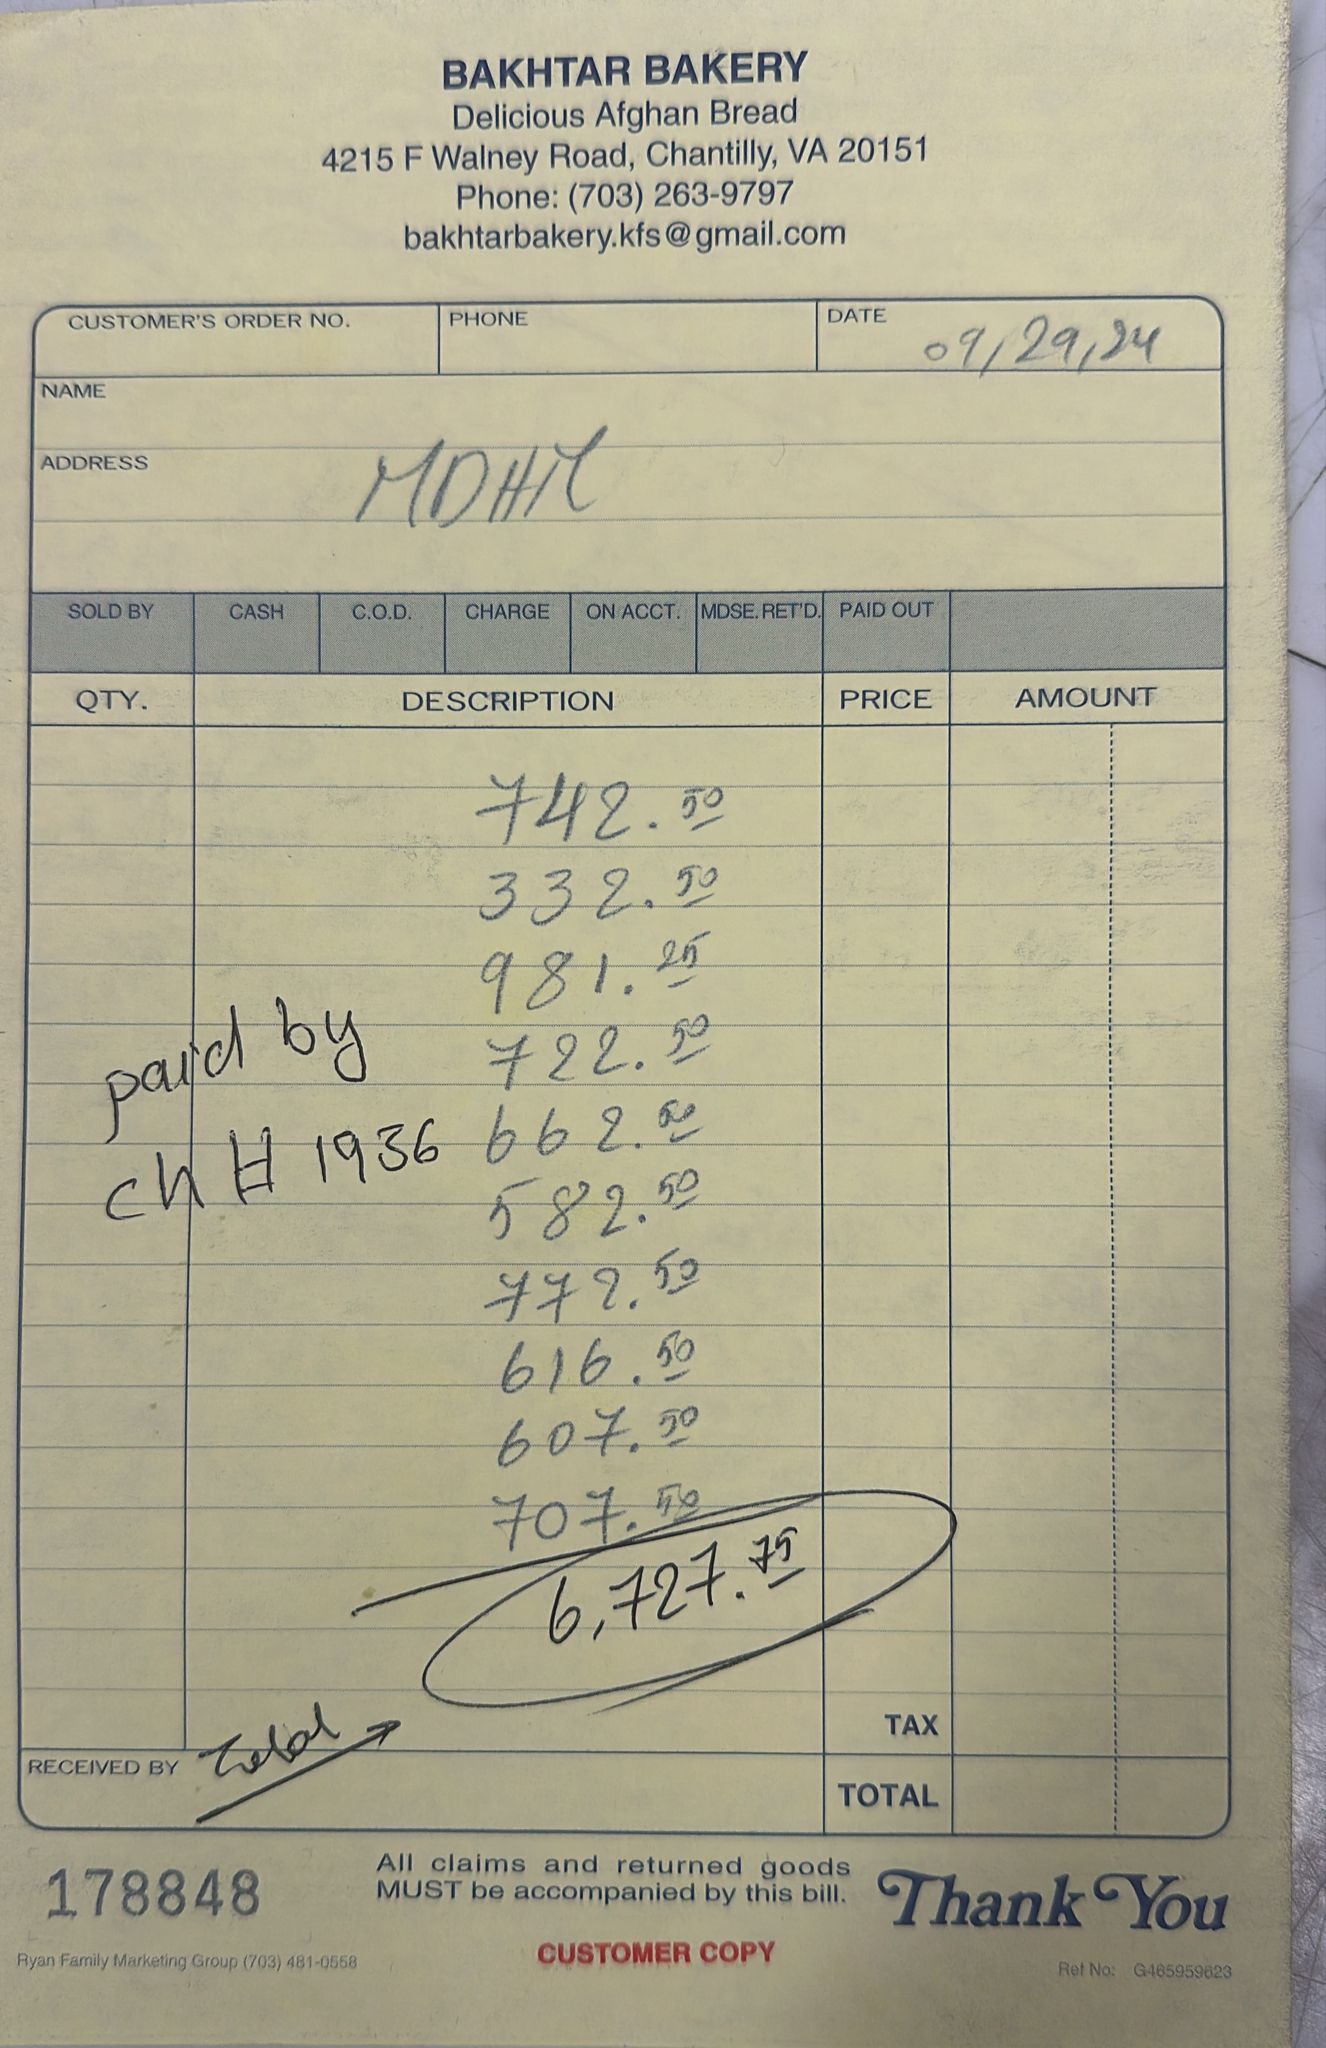 BAKHTAR BAKERY
Delicious Afghan Bread
4215 F Walney Road, Chantilly, VA 20151
Phone: (703) 263-9797
bakhtarbakery.kfs@gmail.com
CUSTOMER'S ORDER NO. PHONE DATE 09/29/24
NAME
ADDRESS
SOLD BY CASH C.O.D. CHARGE ON ACCT. MDSE. RET'D. PAID OUT
QTY. DESCRIPTION PRICE AMOUNT
742.50
332.50
981.25
722.50
paid by
662.50
ch # 1936
582.50
772.50
616.50
607.50
707.50
6,727.75
TAX
RECEIVED BY Total
TOTAL
178848
All claims and returned goods
MUST be accompanied by this bill.
Thank You
Ryan Family Marketing Group (703) 481-0558
CUSTOMER COPY
Ref No: G465959623